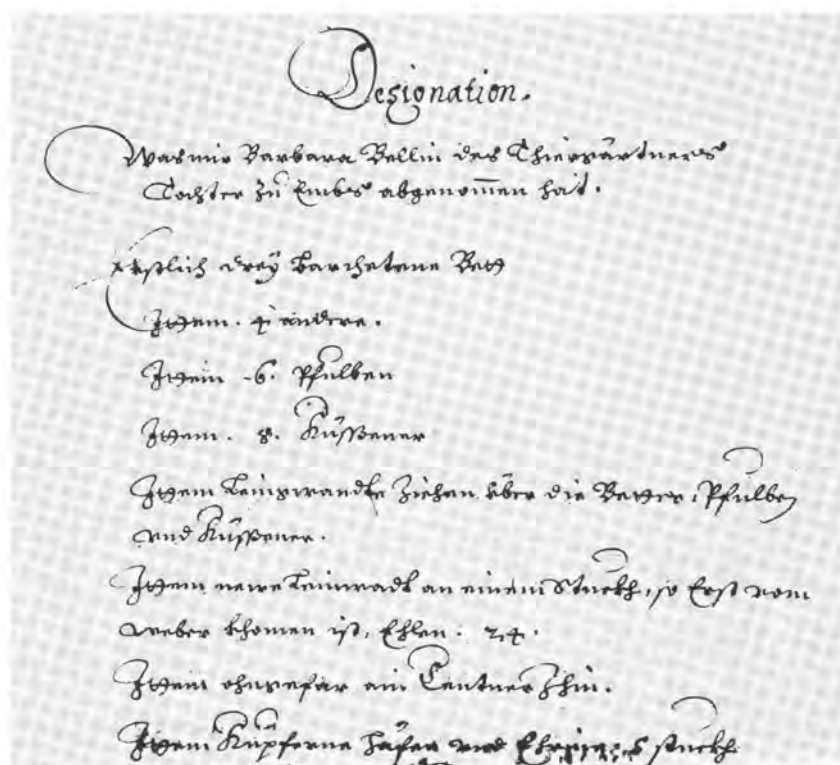 Designation.
Was mir Barbara Bellin des Thiergärtners
Tochter zu Embs abgenommen hat.
Erstlich drey barchetene Beth
Ittem. 4 andere.
Ittem 6. Pfulben
Ittem. 8. Küssener
Ittem Leinwandte Ziehen über die Bether, Pfulben
vnd Küssener.
Ittem newe Leinwadt an einem Stuckh, so Erst vom
Weber khomen ist, Ehlen. 24.
Ittem ohngefar ain Centner Zhin.
Ittem Kupferne Häfen vnd stuckh